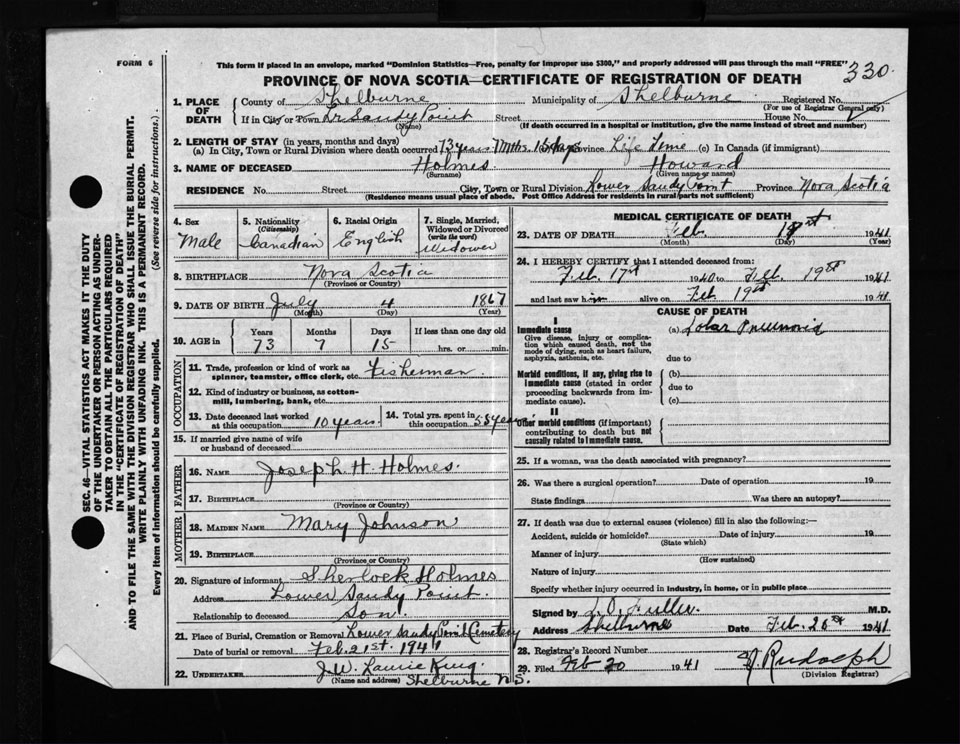 FORM 6
This form if placed in an envelope, marked "Dominion Statistics—Free, penalty for improper use $300," and properly addressed will pass through the mail "FREE"
PROVINCE OF NOVA SCOTIA—CERTIFICATE OF REGISTRATION OF DEATH
330
1. PLACE OF DEATH County of Shelburne Municipality of Shelburne Registered No.
(For use of Registrar General only)
If in City or Town Lr. Sandy Point Street House No.
(Name) (If death occurred in a hospital or institution, give the name instead of street and number)
2. LENGTH OF STAY (in years, months and days)
(a) In City, Town or Rural Division where death occurred 73 years 7 Mths. 15 days Province Life Time (c) In Canada (if immigrant)
3. NAME OF DECEASED Holmes Howard
(Surname) (Given name or names)
RESIDENCE No. Street City, Town or Rural Division Lower Sandy Point Province Nova Scotia
(Residence means usual place of abode. Post Office Address for residents in rural parts not sufficient)
4. Sex Male
5. Nationality (Citizenship) Canadian
6. Racial Origin English
7. Single, Married, Widowed or Divorced (write the word) Widower
8. BIRTHPLACE Nova Scotia
(Province or Country)
9. DATE OF BIRTH July 4 1867
(Month) (Day) (Year)
10. AGE in Years 73 Months 7 Days 15 If less than one day old hrs. or min.
OCCUPATION
11. Trade, profession or kind of work as spinner, teamster, office clerk, etc. Fisherman
12. Kind of industry or business, as cotton-mill, lumbering, bank, etc.
13. Date deceased last worked at this occupation 10 years.
14. Total yrs. spent in this occupation 55 years
15. If married give name of wife or husband of deceased
FATHER
16. NAME Joseph H. Holmes.
17. BIRTHPLACE
(Province or Country)
MOTHER
18. MAIDEN NAME Mary Johnson
19. BIRTHPLACE
(Province or Country)
20. Signature of informant Sherlock Holmes
Address Lower Sandy Point.
Relationship to deceased Son.
21. Place of Burial, Cremation or Removal Lower Sandy Point Cemetery
Date of burial or removal Feb. 21st. 1941
22. UNDERTAKER J. W. Laurie King.
(Name and address) Shelburne N.S.
MEDICAL CERTIFICATE OF DEATH
23. DATE OF DEATH Feb. 1941
(Month) (Day) (Year)
24. I HEREBY CERTIFY that I attended deceased from:
Feb. 17 1940 to Feb. 19th 1941
and last saw him alive on Feb 19th 1941
CAUSE OF DEATH
I
Immediate cause (a) Lobar Pneumonia
Give disease, injury or complication which caused death, not the mode of dying, such as heart failure, asphyxia, asthenia, etc.
due to
Morbid conditions, if any, giving rise to immediate cause (stated in order proceeding backwards from immediate cause). (b)
due to
(c)
II
Other morbid conditions (if important) contributing to death but not causally related to immediate cause.
25. If a woman, was the death associated with pregnancy?
26. Was there a surgical operation? Date of operation 19
State findings Was there an autopsy?
27. If death was due to external causes (violence) fill in also the following:—
Accident, suicide or homicide? Date of injury 19
(State which)
Manner of injury
(How sustained)
Nature of injury
Specify whether injury occurred in industry, in home, or in public place
Signed by L. O. Fuller. M.D.
Address Shelburne Date Feb. 1941
28. Registrar's Record Number
29. Filed Feb 20 1941 Rudolph
(Division Registrar)
SEC. 46—VITAL STATISTICS ACT MAKES IT THE DUTY
OF THE UNDERTAKER OR PERSON ACTING AS UNDER-
TAKER TO OBTAIN ALL THE PARTICULARS REQUIRED
IN THE "CERTIFICATE OF REGISTRATION OF DEATH"
AND TO FILE THE SAME WITH THE DIVISION REGISTRAR WHO SHALL ISSUE THE BURIAL PERMIT.
WRITE PLAINLY WITH UNFADING INK. THIS IS A PERMANENT RECORD.
Every Item of Information should be carefully supplied. (See reverse side for instructions.)